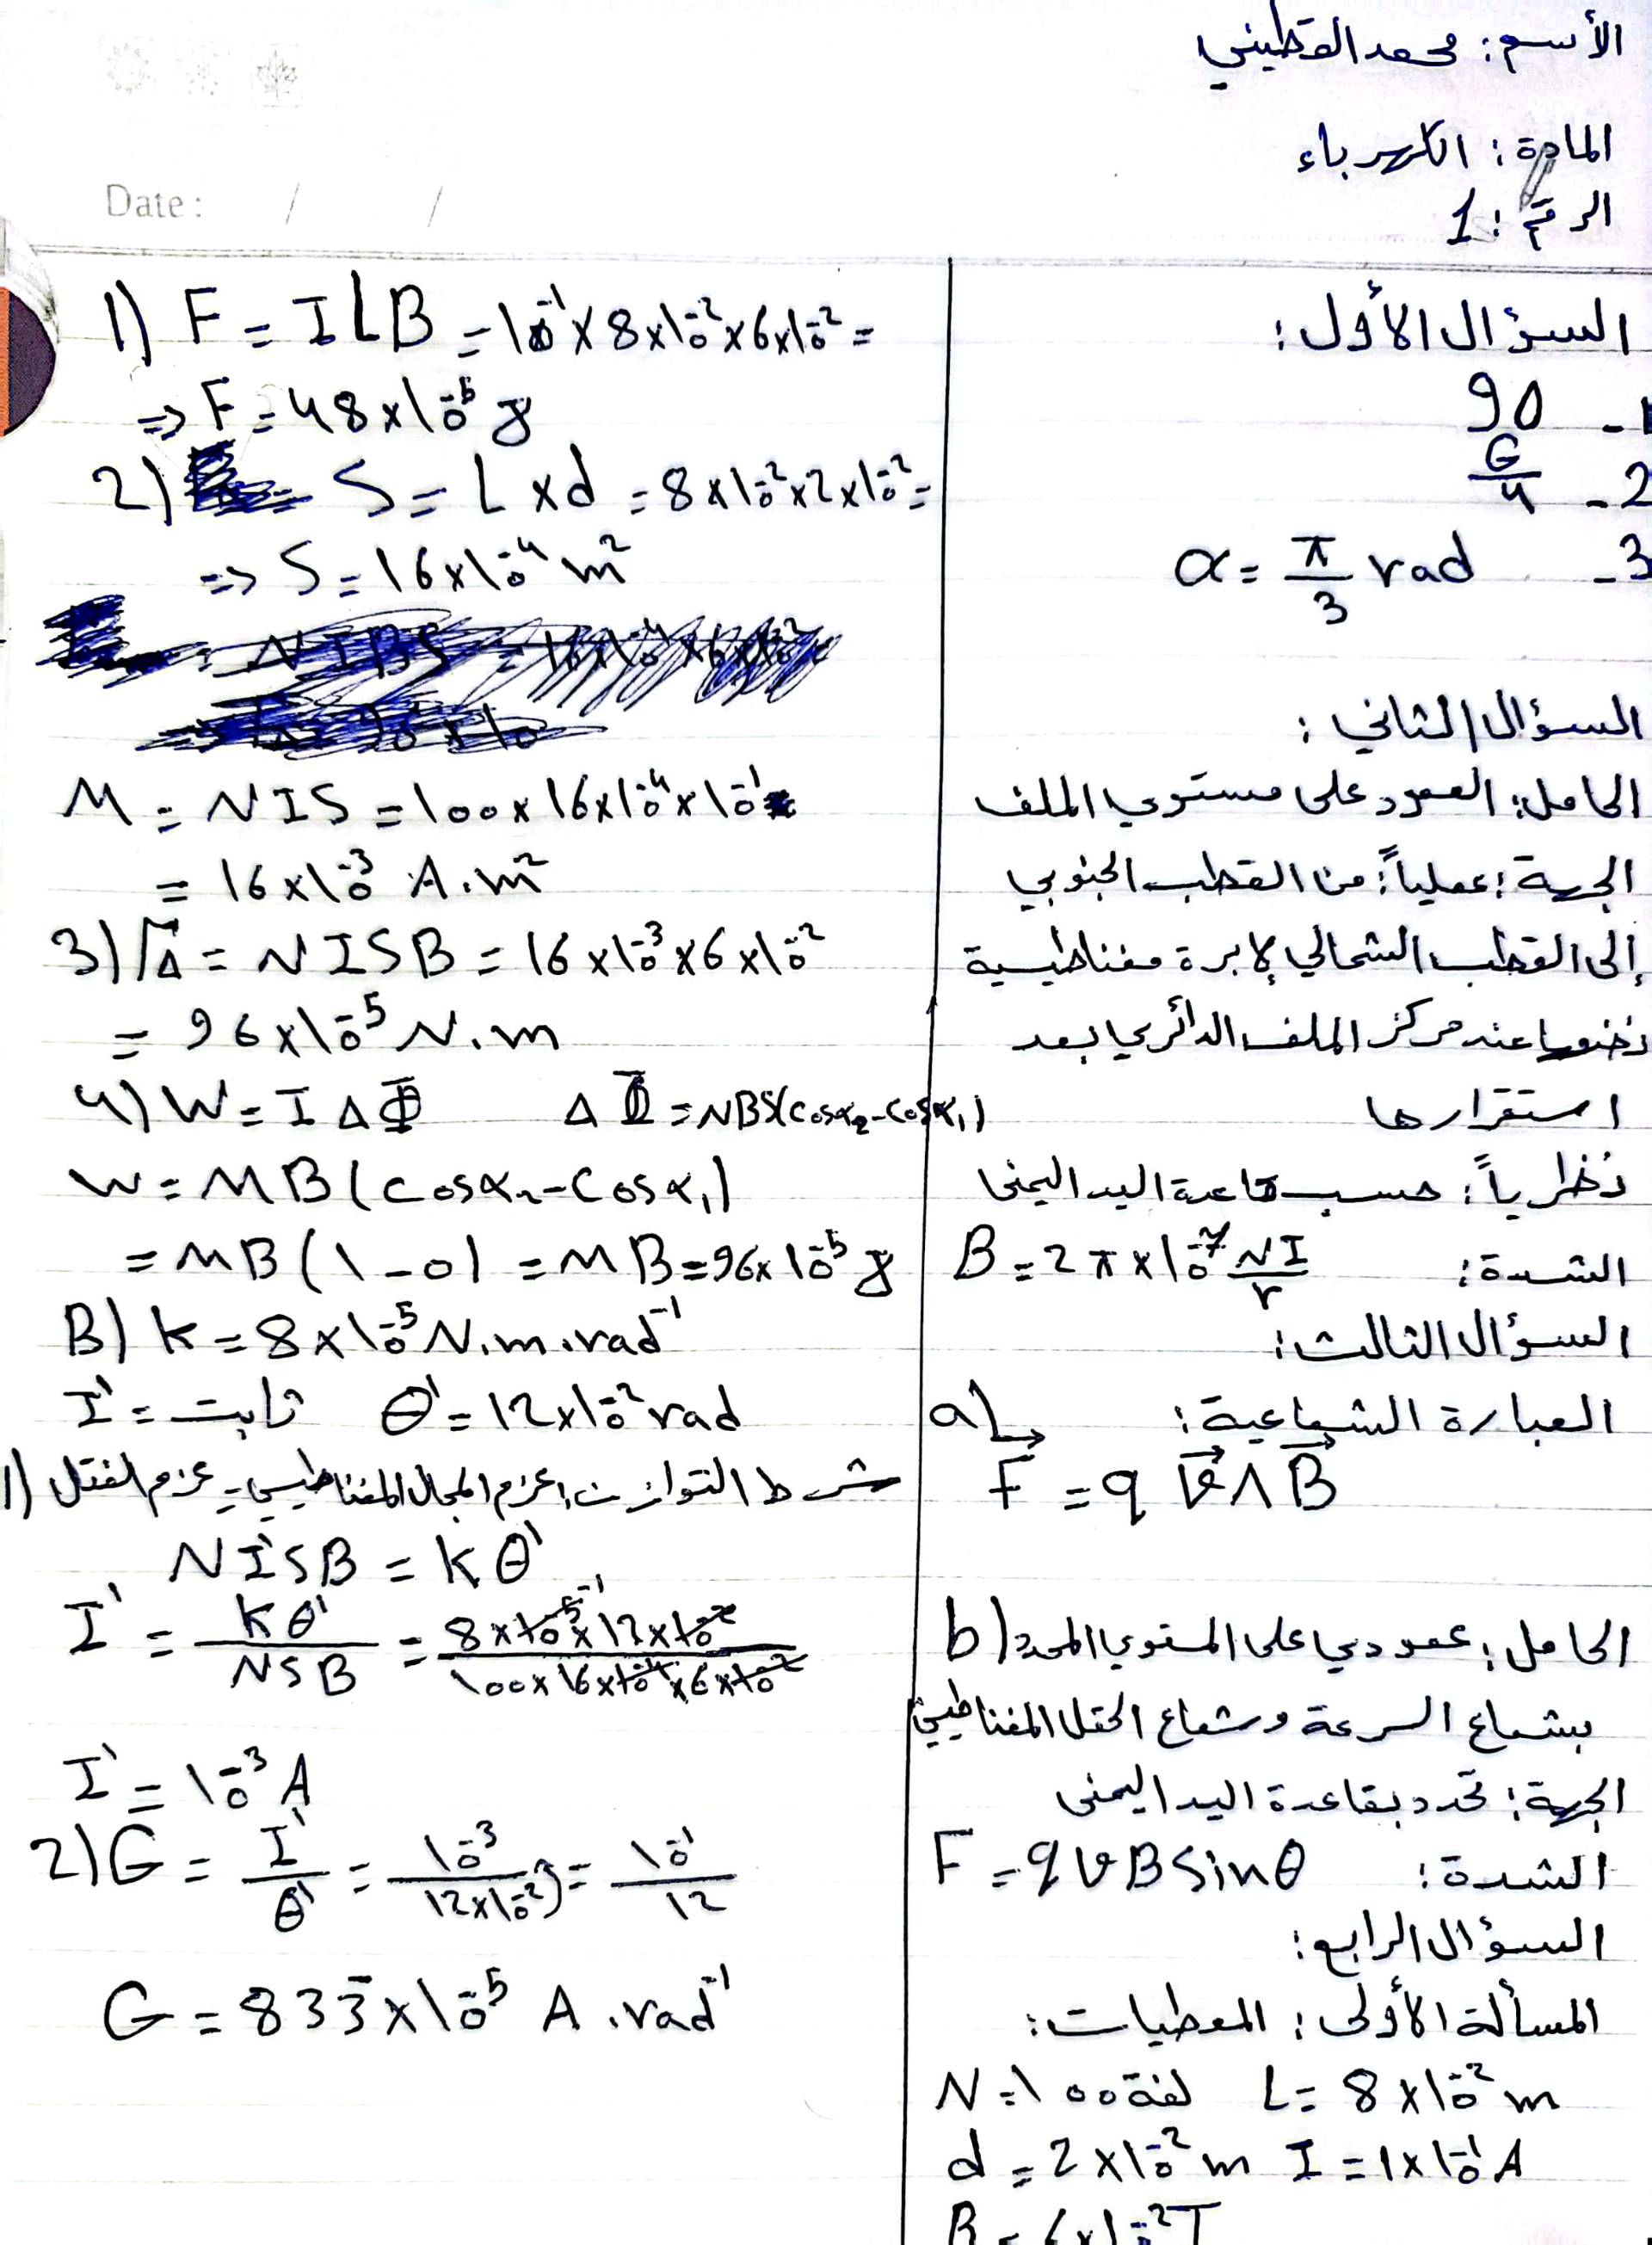 الأسم: محمد القطيني
المادة: الكهرباء
الرقم: 1
Date: / /
السؤال الأول:
1- 90
2- G/4
3- α = π/3 rad
السؤال الثاني:
الحامل: العمود على مستوي الملف
الجهة: عملياً: من القطب الجنوبي
إلى القطب الشمالي لإبرة مغناطيسية
نضعها عند مركز الملف الدائري بعد
استقرارها
نظرياً: حسب قاعدة اليد اليمنى
الشدة: B = 2π × 10⁻⁷ NI/r
السؤال الثالث:
a) العبارة الشعاعية:
F⃗ = q v⃗ ∧ B⃗
b) الحامل: عمودي على المستوي المحدد
بشعاع السرعة وشعاع الحقل المغناطيسي
الجهة: تحدد بقاعدة اليد اليمنى
الشدة: F = q v B sin θ
السؤال الرابع:
المسألة الأولى: المعطيات:
N = 100 لفة L = 8 × 10⁻² m
d = 2 × 10⁻² m I = 1 × 10⁻¹ A
B = 6 × 10⁻² T
1) F = I L B = 10⁻¹ × 8 × 10⁻² × 6 × 10⁻² =
⇒ F = 48 × 10⁻⁵ J
2) S = L × d = 8 × 10⁻² × 2 × 10⁻² =
⇒ S = 16 × 10⁻⁴ m²
M = NIS = 100 × 16 × 10⁻⁴ × 10⁻¹
= 16 × 10⁻³ A.m²
3) Γ⃗Δ = NISB = 16 × 10⁻³ × 6 × 10⁻²
= 96 × 10⁻⁵ N.m
4) W = I Δ Φ Δ Φ = NBS(cosα₂ - cosα₁)
W = MB (cosα₂ - cosα₁)
= MB (1 - 0) = MB = 96 × 10⁻⁵ J
B) k = 8 × 10⁻⁵ N.m.rad⁻¹
I' = ثابت θ' = 12 × 10⁻² rad
1) شرط التوازن: عزم المجال المغناطيسي = عزم الفتل
NI'SB = kθ'
I' = kθ'/NSB = 8 × 10⁻⁵ × 12 × 10⁻² / 100 × 16 × 10⁻⁴ × 6 × 10⁻²
I' = 10⁻³ A
2) G = I'/θ' = 10⁻³/12 × 10⁻² = 10⁻¹/12
G = 833 × 10⁻⁵ A.rad⁻¹